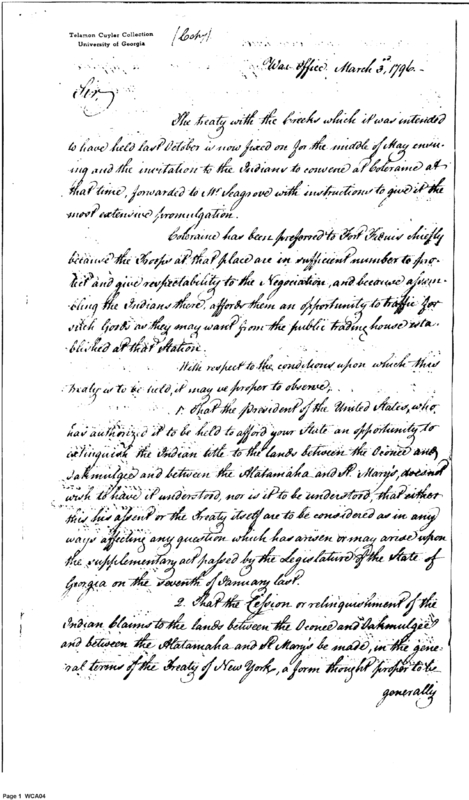 Telamon Cuyler Collection
University of Georgia
(Copy)
War office March 3d, 1796.
Sir,
The treaty with the Creeks which it was intended
to have held last October is now fixed on for the middle of May ensu-
ing and the invitation to the Indians to convene at Coleraine at
that time, forwarded to Mr. Seagrove with instructions to give it the
most extensive promulgation.
Coleraine has been preferred to Fort chiefly
because the Troops at that place are in sufficient number to pro-
tect and give respectability to the Negociation, and because assem-
bling the Indians there, affords them an opportunity to traffic for
such Goods as they may want from the public trading house esta-
blished at that Station.
With respect to the conditions upon which this
treaty is to be held, it may be proper to observe,
1. That the president of the United States, who
has authorized it to be held to afford your State an opportunity to
extinguish the Indian title to the lands between the Oconee and
Oakmulgee and between the Alatamaha and St. Mary's, does not
wish to have it understood, nor is it to be understood, that either
this his assent or the Treaty itself are to be considered as in any
ways affecting any question which has arisen or may arise upon
the supplementary act passed by the Legislature of the State of
Georgia on the seventh of January last.
2. That the Cession or relinquishment of the
Indian Claims to the lands between the Oconee and Oakmulgee
and between the Alatamaha and St. Mary's be made, in the gene-
ral terms of the Treaty of New York, a form thought proper to be
generally
Page 1 WCA04